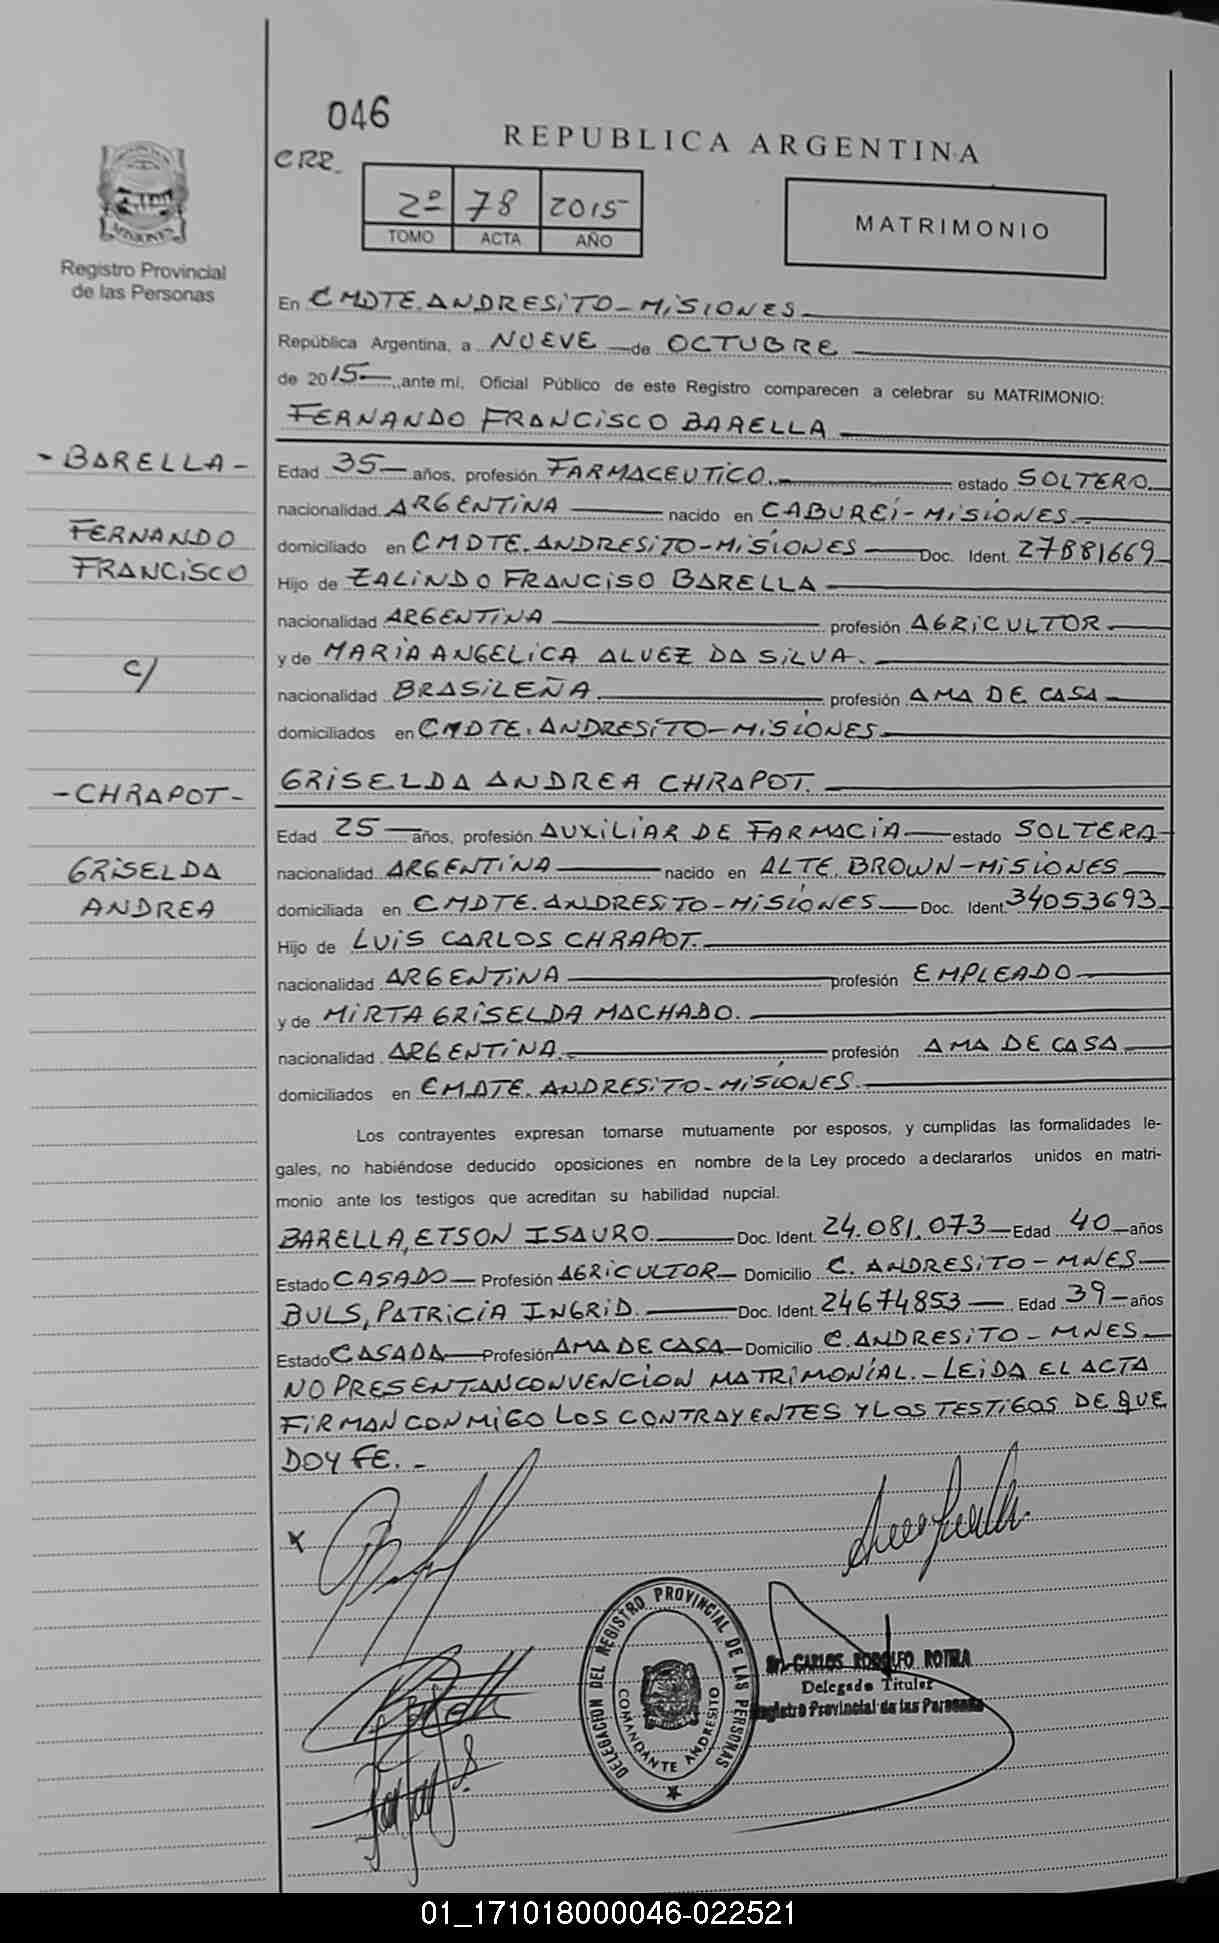 046
REPUBLICA ARGENTINA
CRR.
2º 78 2015
TOMO ACTA AÑO
MATRIMONIO
MISIONES
Registro Provincial
de las Personas
En CMDTE. ANDRESITO - MISIONES
República Argentina, a NUEVE de OCTUBRE
de 2015 ante mí, Oficial Público de este Registro comparecen a celebrar su MATRIMONIO:
FERNANDO FRANCISCO BARELLA
- BARELLA -
FERNANDO
FRANCISCO
C/
- CHRAPOT -
GRISELDA
ANDREA
Edad 35 años, profesión FARMACEUTICO. estado SOLTERO
nacionalidad ARGENTINA nacido en CABUREÍ - MISIONES
domiciliado en CMDTE. ANDRESITO - MISIONES Doc. Ident. 27881669
Hijo de ZALINDO FRANCISO BARELLA
nacionalidad ARGENTINA profesión AGRICULTOR
y de MARIA ANGELICA ALVEZ DA SILVA.
nacionalidad BRASILEÑA profesión AMA DE CASA
domiciliados en CMDTE. ANDRESITO - MISIONES
GRISELDA ANDREA CHRAPOT.
Edad 25 años, profesión AUXILIAR DE FARMACIA estado SOLTERA
nacionalidad ARGENTINA nacido en ALTE. BROWN - MISIONES
domiciliada en CMDTE. ANDRESITO - MISIONES Doc. Ident. 34053693
Hijo de LUIS CARLOS CHRAPOT.
nacionalidad ARGENTINA profesión EMPLEADO
y de MIRTA GRISELDA MACHADO.
nacionalidad ARGENTINA profesión AMA DE CASA
domiciliados en CMDTE. ANDRESITO - MISIONES.
Los contrayentes expresan tomarse mutuamente por esposos, y cumplidas las formalidades le-
gales, no habiéndose deducido oposiciones en nombre de la Ley procedo a declararlos unidos en matri-
monio ante los testigos que acreditan su habilidad nupcial.
BARELLA, ETSON ISAURO. Doc. Ident. 24.081.073 Edad 40 años
Estado CASADO Profesión AGRICULTOR Domicilio C. ANDRESITO - MNES
BULS, PATRICIA INGRID. Doc. Ident. 24674853 Edad 39 años
Estado CASADA Profesión AMA DE CASA Domicilio C. ANDRESITO - MNES
NO PRESENTAN CONVENCION MATRIMONIAL. - LEIDA EL ACTA
FIRMAN CONMIGO LOS CONTRAYENTES Y LOS TESTIGOS DE QUE
DOY FE. -
X
DELEGACION DEL REGISTRO PROVINCIAL DE LAS PERSONAS
COMANDANTE ANDRESITO
Dr. CARLOS RODOLFO ROTHA
Delegado Titular
Registro Provincial de las Personas
01_171018000046-022521